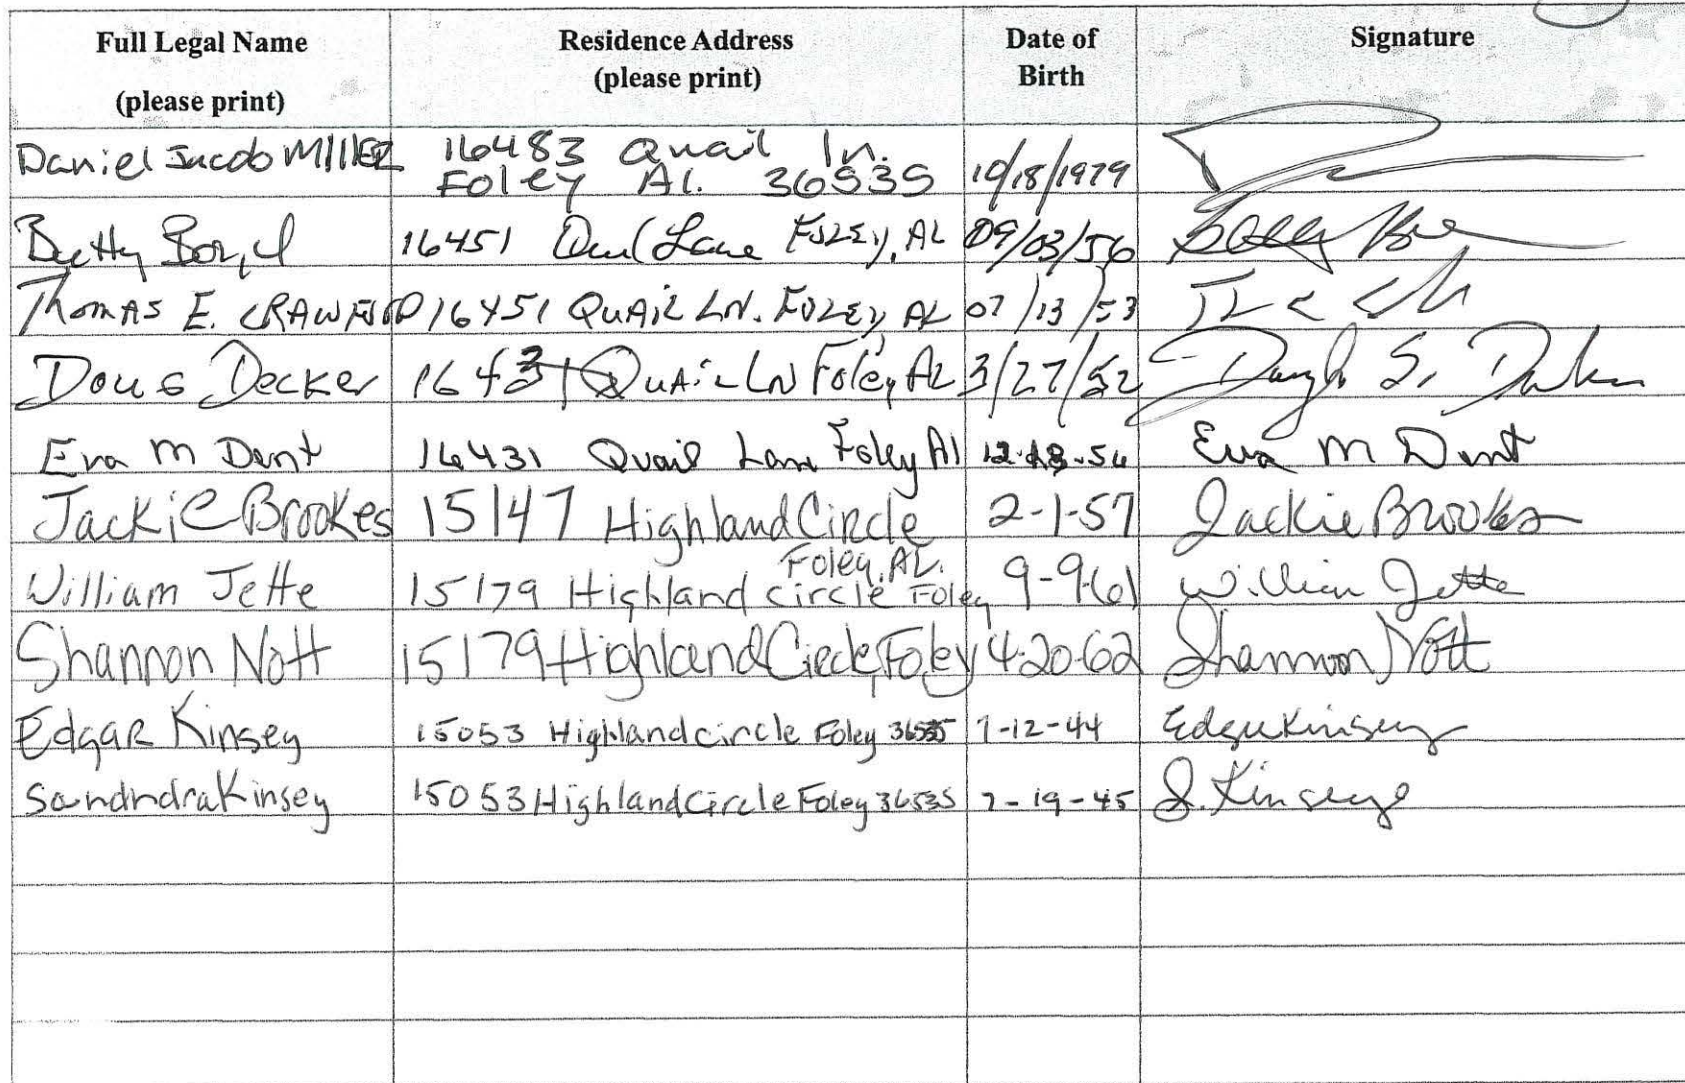 Full Legal Name (please print) Residence Address (please print) Date of Birth Signature
Daniel Jacob MIller 16483 Quail ln. Foley Al. 36535 10/18/1979
Betty 16451 Lane FOLEY, AL 09/03/56
Thomas E. CRAWFORD 16451 QUAIL LN. FOLEY, AL 07/13/53
Doug Decker Quail LN Foley AL 3/27/52
Eva M Dent 16431 Quail Lane Foley Al Eva M Dent
Jackie Brookes 15147 Highland Circle Foley, AL. 2-1-57 Jackie Brookes
William Jette 15179 Highland circle Foley 9-9-61 William Jette
Shannon Nott 15179 Highland Circle, Foley 4-20-62 Shannon Nott
Edgar Kinsey 15053 Highland circle Foley 36535 7-12-44 Edgar Kinsey
Sandndra Kinsey 15053 Highland Circle Foley 36535 7-19-45 S. Kinsey